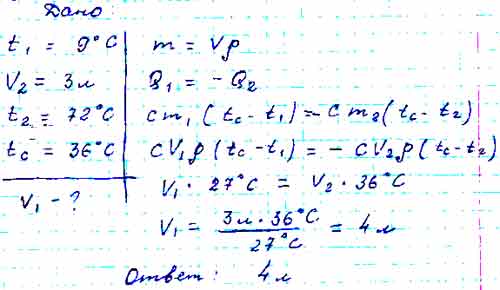 Дано
t₁ = 9°C
V₂ = 3л
t₂ = 72°C
t_c = 36°C
V₁ - ?
m = Vρ
Q₁ = - Q₂
cm₁(t_c - t₁) = -cm₂(t_c - t₂)
cV₁ρ(t_c - t₁) = - cV₂ρ(t_c - t₂)
V₁ · 27°C = V₂ · 36°C
V₁ = 3л · 36°C / 27°C = 4л
Ответ: 4л